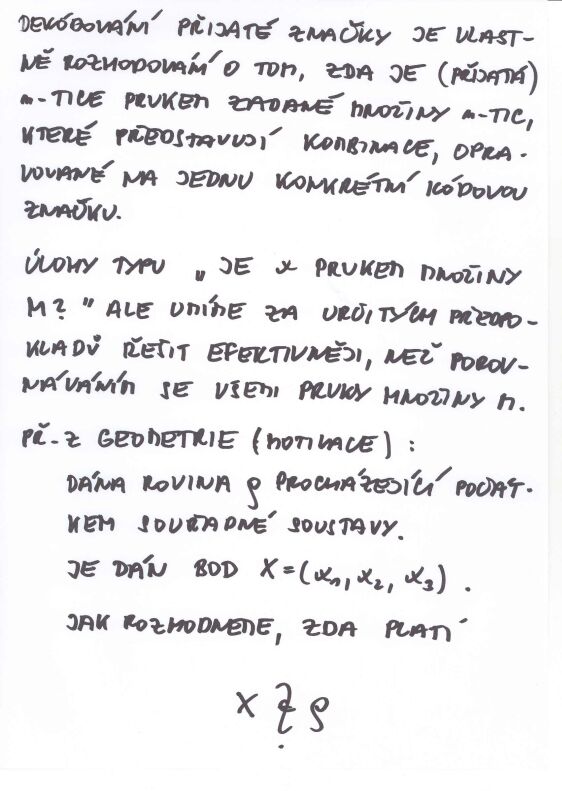 DEKÓDOVÁNÍ PŘIJATÉ ZNAČKY JE VLAST-
NĚ ROZHODOVÁNÍ O TOM, ZDA JE (PŘIJATÁ)
m-TICE PRVKEM ZADANÉ MNOŽINY m-TIC,
KTERÉ PŘEDSTAVUJÍ KOMBINACE, OPRA-
VOVANÉ NA JEDNU KONKRÉTNÍ KÓDOVOU
ZNAČKU.
ÚLOHY TYPU „JE x PRVKEM MNOŽINY
M?" ALE UMÍME ZA URČITÝCH PŘEDPO-
KLADŮ ŘEŠIT EFEKTIVNĚJI, NEŽ POROV-
NÁVÁNÍM SE VŠEMI PRVKY MNOŽINY M.
PŘ. Z GEOMETRIE (MOTIVACE):
DÁNA ROVINA ρ PROCHÁZEJÍCÍ POČÁT-
KEM SOUŘADNÉ SOUSTAVY.
JE DÁN BOD X=(x₁, x₂, x₃).
JAK ROZHODNEME, ZDA PLATÍ
X ∈? ρ